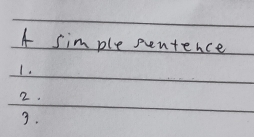 A simple sentence
1.
2.
3.